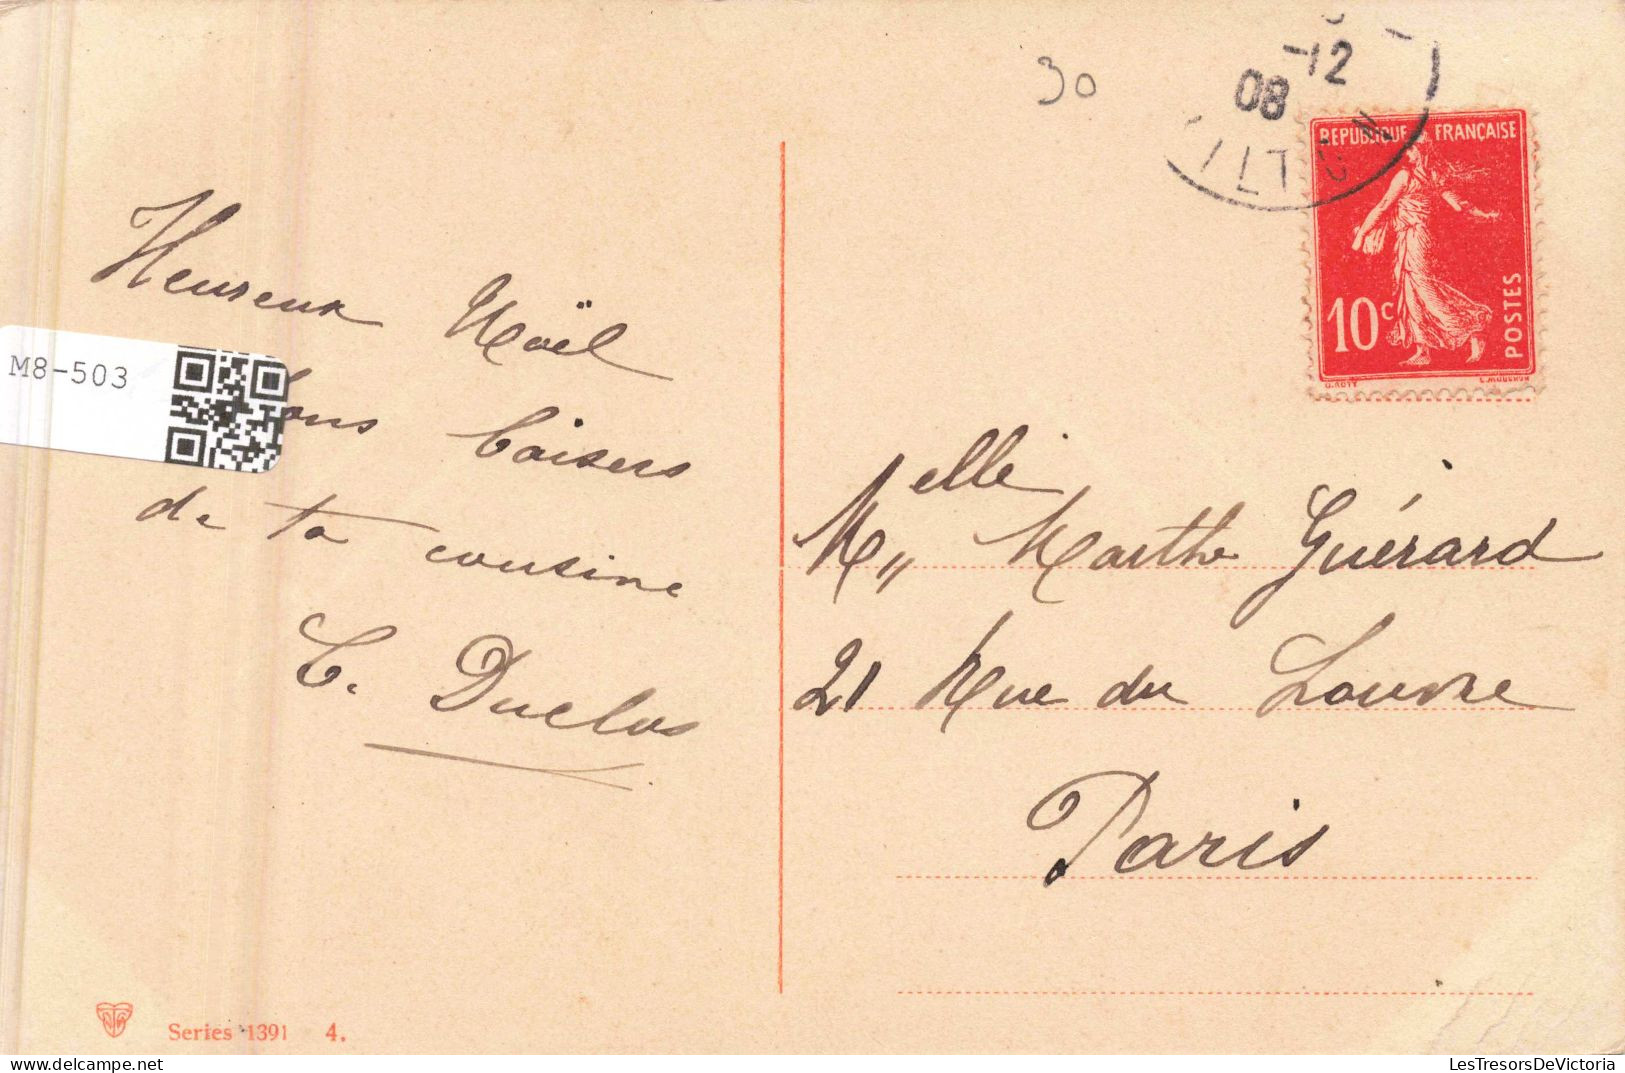 30
-12
08
REPUBLIQUE FRANÇAISE
10c
POSTES
O. ROTY
E. MOUCHON
M8-503
Heureux Noël
bons baisers
de ta cousine
C. Duclos
Melle Marthe Guérard
21 Rue du Louvre
Paris
Series 1391 4.
LesTresorsDeVictoria